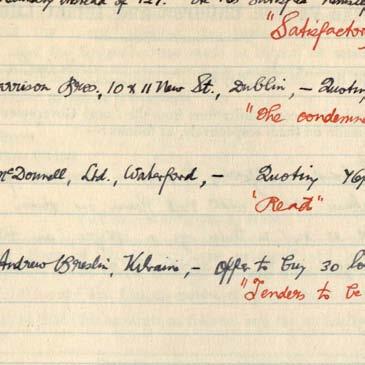 instead of 12/.
"Satisfactor
arrison Bros., 10 & 11 New St., Dublin, — Quotin
"The condemn
McDonnell, Ltd., Waterford, — Quoting 76/
"Read"
Andrew Breslin, Kilraine, — Offer to buy 30 lo
"Tenders to be